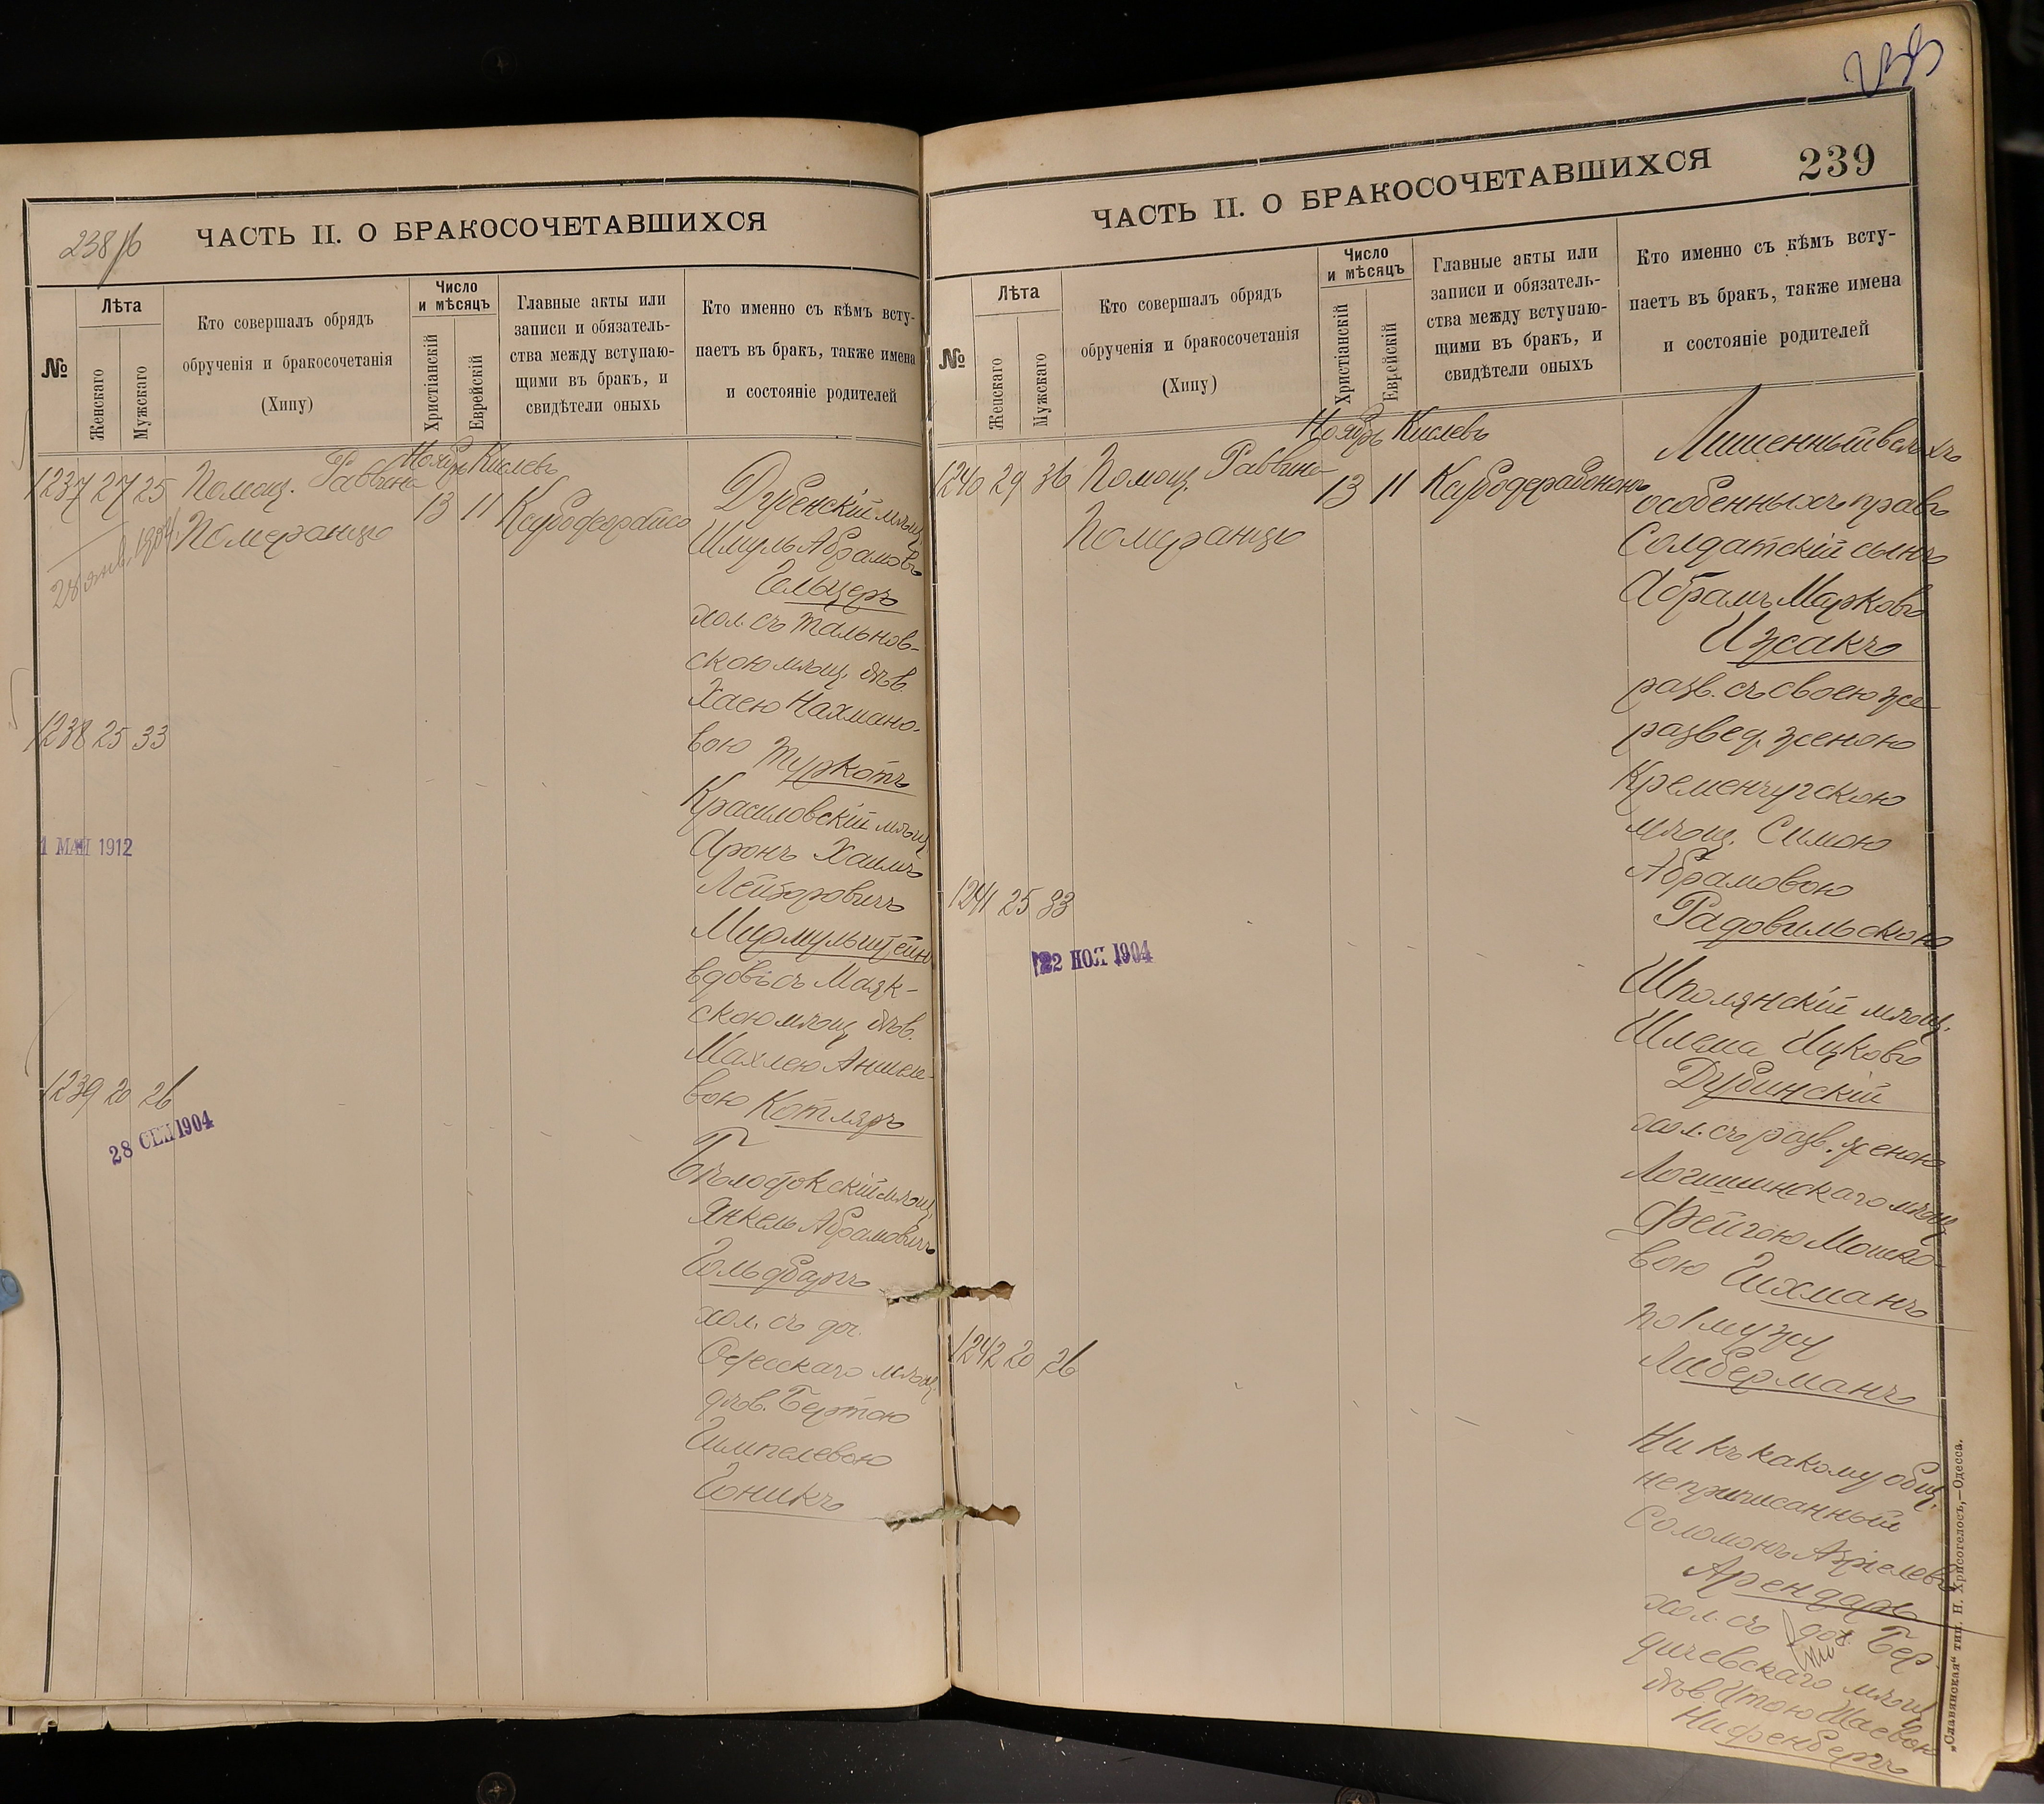 238/б
ЧАСТЬ II. О БРАКОСОЧЕТАВШИХСЯ
№
Лѣта
Женскаго
Мужскаго
Кто совершалъ обрядъ
обрученія и бракосочетанія
(Хипу)
Число
и мѣсяцъ
Христіанскій
Еврейскій
Главные акты или
записи и обязатель-
ства между вступаю-
щими въ бракъ, и
свидѣтели оныхъ
Кто именно съ кѣмъ всту-
паетъ въ бракъ, также имена
и состояніе родителей
Ноябрь Кислевъ
1237 27 25 Помощ. Раввина 13 11
Померанцъ
28 янв. 1904.
Дубенскій мѣщ.
Шмуль Абрамовъ
Гельцеръ
хол. съ Тальнов-
скою мѣщ. дѣв.
Хаею Нахмано-
вою Туркотъ
1238 25 33
1 МАЯ 1912
Красиловскій мѣщ
Аронъ Хаимъ
Лейзоровичъ
Мирмульштейнъ
вдов. съ Маяк-
скою мѣщ дѣв.
Махлею Аншеле-
вою Котляръ
1239 20 26
28 СЕН 1904
Бѣлостокскій мѣщ.
Янкель Абрамовичъ
Гольдбартъ
хол. съ доч.
Одесскаго мѣщ.
дѣв. Бертою
Гимпелевою
Гоникъ
239
ЧАСТЬ II. О БРАКОСОЧЕТАВШИХСЯ
239
№
Лѣта
Женскаго
Мужскаго
Кто совершалъ обрядъ
обрученія и бракосочетанія
(Хипу)
Число
и мѣсяцъ
Христіанскій
Еврейскій
Главные акты или
записи и обязатель-
ства между вступаю-
щими въ бракъ, и
свидѣтели оныхъ
Кто именно съ кѣмъ всту-
паетъ въ бракъ, также имена
и состояніе родителей
Ноябрь Кислевъ
1240 29 36 Помощ. Раввина 13 11
Померанцъ
Лишенный всѣхъ
особенныхъ правъ
Солдатскій сынъ
Абрамъ Марковъ
Ижакъ
разв. съ своею же
развед. женою
Кременчугскою
мѣщ. Симою
Абрамовою
Радовильскою
1241 25 33
22 НОЯ 1904
Шполянскій мѣщ.
Шлема Ицковъ
Дубинскій
хол. съ разв. женою
Логишинскаго мѣщ
Фейгою Мошко-
вою Гихманъ
по I мужу
Либерманъ
1242 20 26
Ни къ какому общ.
неприписанный
Соломонъ Азріелевъ
Арендаръ
хол. съ доч. Бер-
дичевскаго мѣщ
дѣв Итою Шаевою
Ниренбергъ
„Славянская“ тип. Н. Хрисогелосъ,—Одесса.